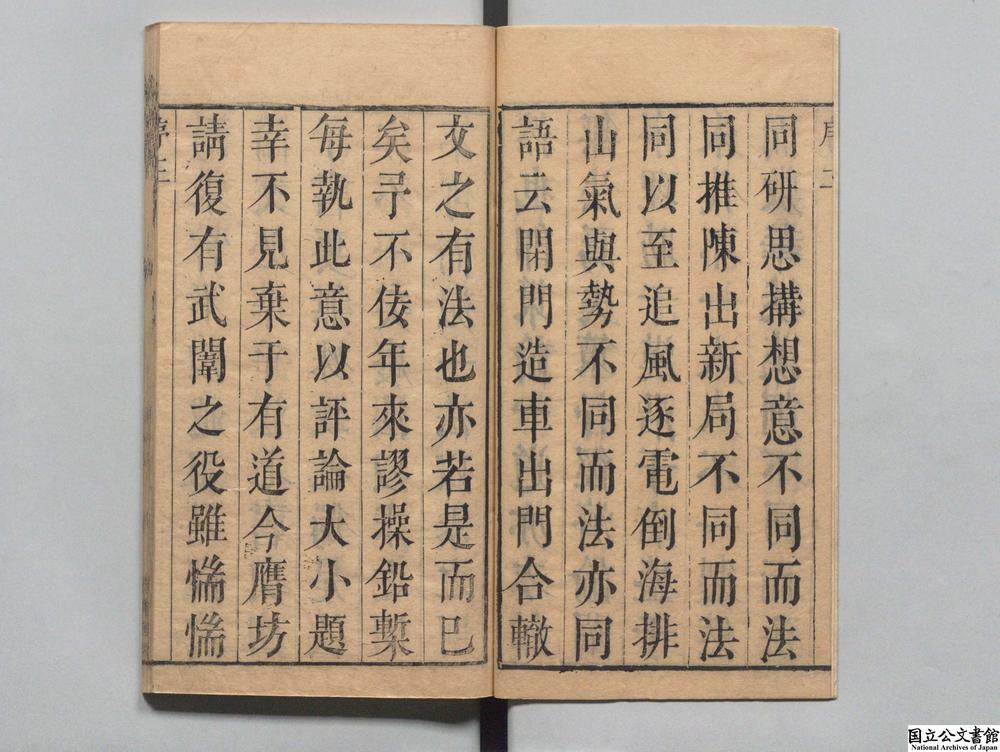 同研思搆想意不同而法
同推陳出新局不同而法
同以至追風逐電倒海排
山氣與勢不同而法亦同
語云閉門造車出門合轍
文之有法也亦若是而已
矣予不佞年來謬操鉛槧
每執此意以評論大小題
幸不見棄于有道今膺坊
請復有武闈之役雖惴惴
序三
国立公文書館
National Archives of Japan